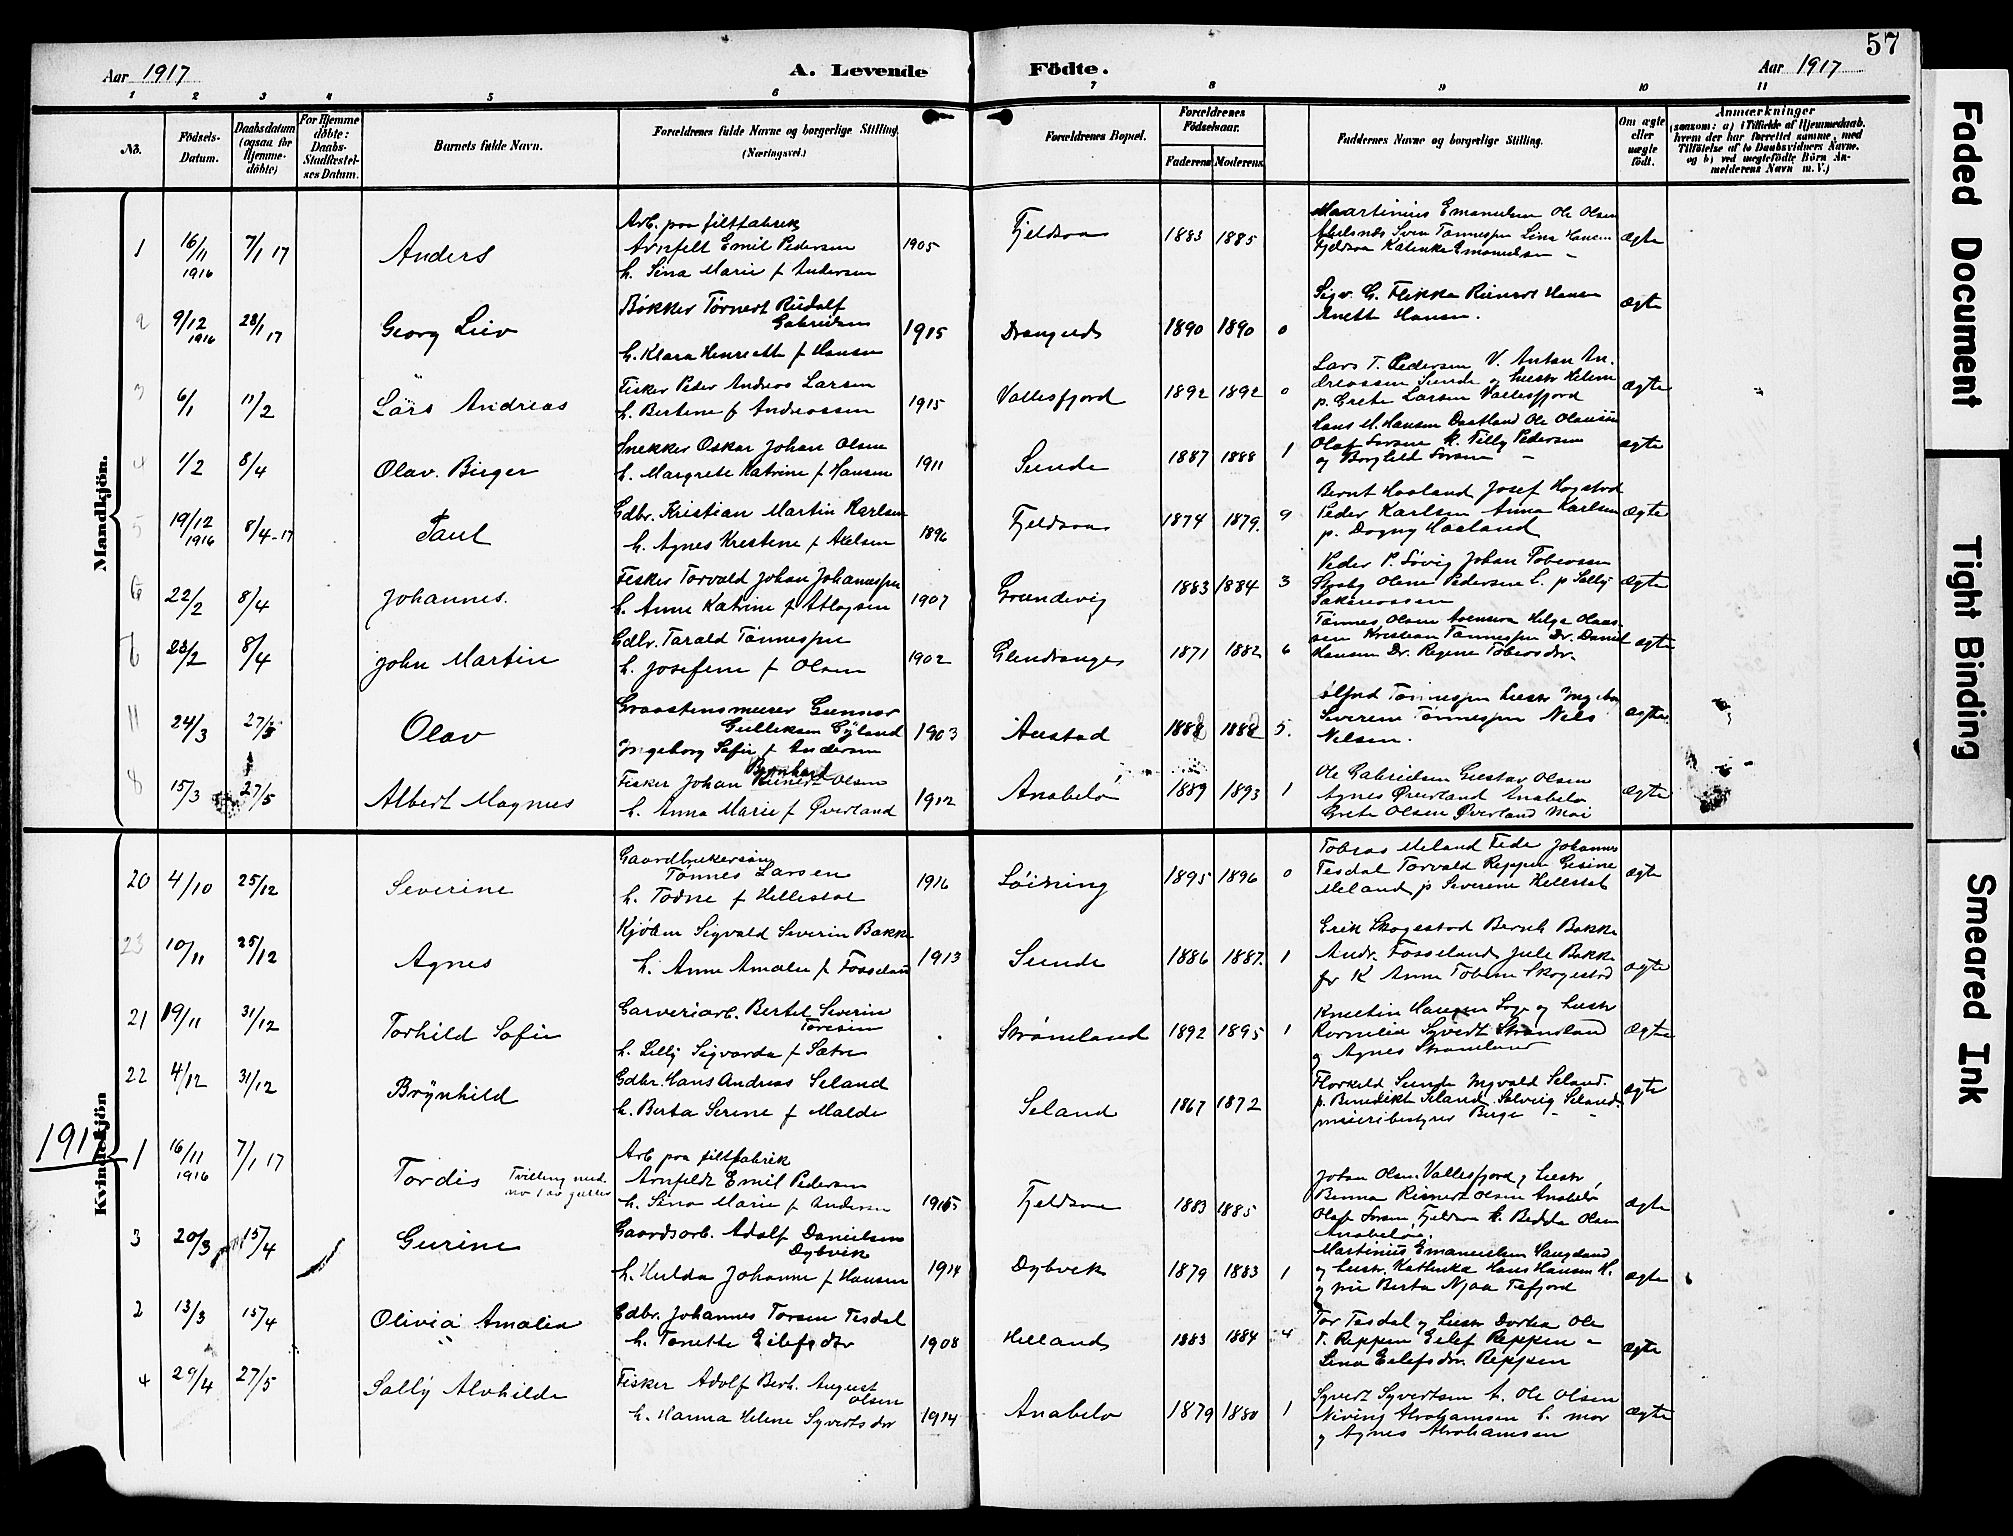 57
Aar 1917
A. Levende Födte.
Aar 1917
1 2 3 4 5 6 7 8 9 10 11
No.
Födsels-Datum.
Daabsdatum (ogsaa for Hjemme-döbte)
For Hjemme döbte: Daabs-Stadfæstel-ses Datum.
Barnets fulde Navn.
Forældrenes fulde Navne og borgerlige Stilling. (Næringsvei.)
Forældrenes Bopæl.
Forældrenes Födselsaar.
Faderens Moderens
Faddernes Navne og borgerlige Stilling.
Om ægte eller uægte födt.
Anmærkninger
(saasom: a) i Tilfælde af Hjemmedaab, hvem der har forrettet samme, med Tilföielse af to Daabsvidners Navne, og b) ved uægtefödte Börn An-melderens Navn m. V.)
Mandkjön.
1 16/11 1916 7/1 17 Anders
Arb. paa filtfabrik
Arnfelt Emil Pedersen 1905
h. Sina Marie f Andersen
Fjeldsaa 1883 1885
Maartinius Emanuelsen Ole Olsen
Sven Tønnesen Lina
Fjeldsaa Katinka Emanuelsen
ægte
2 9/12 1916 28/1 17 Georg Liev
Bøkker Tørnert Rudolf
Gabrielsen 1915
h. Klara Henriette f Hansen
Drangeid 1890 1890 0
Sigv. G. Flikka Reinert Hansen
Anette Hansen.
ægte
3 6/1 11/2 Lars Andreas
Fisker Peder Andreas Larsen
h. Bertine f Andreassen 1915
Vallesfjord 1892 1892 0
Lars T. Pedersen V. Anton An-
dreassen Sunde og hustr Helene
p. Grete Larsen Vallesfjord
ægte
4 1/2 8/4 Olav. Birger
Snekker Oskar Johan Olsen
h. Margrete Katrine f Hansen 1911
Sunde 1887 1888 1
Hans M. Hansen Ole
Olaf K. Tilly Pedersen
og Borghild
ægte
5 19/12 1916 8/4-17 Paul
Gdbr. Kristian Martin Karlsen
h. Agnes Kristine f Axelsen 1896
Fjeldsaa 1874 1879. 9
Bernt Haaland Josef Hogstad
Peder Karlsen Anna Karlsen
p. Dagny Haaland
ægte
6 22/2 8/4 Johannes.
Fisker Torvald Johan Johannesen
h. Anne Katrine f Atlagsen 1907
Grundevig 1883 1884 3
Peder P. Søvig Johan Tobiassen
Olene Pedersen p Sally
Sakariassen
ægte
7 23/2 8/4 John Martin
Gdbr. Tarald Tønnesen
h. Josefine f Olsen 1902
Glendrange 1871 1882 6
Tønnes Olsen Helga
Kristian Tønnesen Dr. Daniel
Hansen Dr. Regine Tobiasdr.
ægte
11 24/3 27/5 Olav
Graastensmurer Gunnar
Gulliksen Gyland 1903
Ingeborg Sofie f Andersen
Austad 1888 1882 5.
Tønnesen hustr Ingeborg
Severine Tønnesen Nils
Nilsen.
ægte
8 15/3 27/5 Albert Magnus
Bernhard
Fisker Johan Reinert Olsen
h. Anna Marie f Øverland 1912
Anabelø 1889 1893 1
Ole Gabrielsen Gustav Olsen
Agnes Øverland Anabelø
Grete Olsen Øverland Moi
ægte
Kvindekjön
20 4/10 25/12 Severine
Gaardbrukersøn
Tønnes Larsen 1916
h. Todne f Hellestøl
Løidning 1895 1896 0
Tobias Meland Fede Johannes
Tesdal Torvald Reppen Gesine
Meland p Severine Hellestøl
ægte
23 10/11 25/12 Agnes
Kjøbm Sigvald Severin Bakke
h. Anne Amalie f Fosseland 1913
Sunde 1886 1887. 1
Erik Skogestad Bernh Bakke
Andr. Fosseland Jule Bakke
fr K Anna Tobine Skogestad
ægte
21 19/11 31/12 Torhild Sofie
Garveriarb. Bertel Severin
Toresen
h. Lilly Sigvarda f Sætre
Strømsland 1892 1895 1
Knutin Hansen Loge og hustr
Kornelia Syvert Strømland
og Agnes Strømland
ægte
22 4/12 31/12 Brynhild
Gdbr. Hans Andreas Seland
h. Berta Serine f Malde
Seland 1867 1872
Thorkild Sunde Ingvald Seland.
p. Benedikt Seland Solveig Seland.
meieribestyrer Berge
ægte
1917
1 16/11 1916 7/1 17 Tordis Tvilling med no 1 av gutter
Arb paa filtfabrik
Arnfeldt Emil Pedersen
h. Sina Marie f Andersen 1915
Fjeldsaa 1883 1885
Johan Olsen Vallesfjord og hustr
Benna Reinert Olsen Anabelø
Olaf Fjeldsaa k. Bedda Olsen
Anabelø.
ægte
3 20/3 15/4 Gurine
Gaardsarb. Adolf Danielsen
Dybvik
h. Hulda Johanne f Hansen 1914
Dybvik 1879 1883 1
Martinius Emanuelsen Haugland
og hustr. Kathinka Hans Hansen H.
og nie Berta Njaa Tefjord
ægte
2 13/3 15/4 Olivia Amalia
Gdbr. Johannes Torsen Tesdal
h. Tonette Eilefsdtr 1908
Helland 1883 1884 4
Tor Tesdal og hustr Dortea Ole
T. Reppen Eilef Reppen
Lina Eilefsdtr. Reppen
ægte
4 29/4 27/5 Sally Alvhilde
Fisker Adolf Berh. August
Olsen
h. Hanna Helene Syvertsdtr 1914
Anabelø 1879 1880 1
Syvert Syvertsen A. Ole Olsen
Abrahamsen b. mor
og Agnes Abrahamsen
ægte
Faded Document
Tight Binding
Smeared Ink